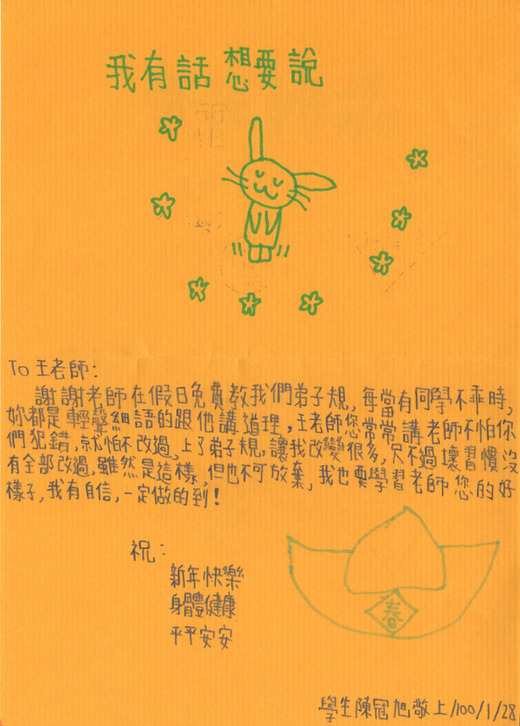 我有話想要說
To 王老師:
謝謝老師在假日免費教我們弟子規,每當有同學不乖時,
妳都是輕聲細語的跟他講道理,王老師您常常講老師不怕你
們犯錯,就怕不改過,上了弟子規,讓我改變很多,只不過壞習慣沒
有全部改過,雖然是這樣,但也不可放棄,我也要學習老師您的好
樣子,我有自信,一定做的到!
祝:
新年快樂
身體健康
平平安安
春
學生陳冠旭敬上/100/1/28